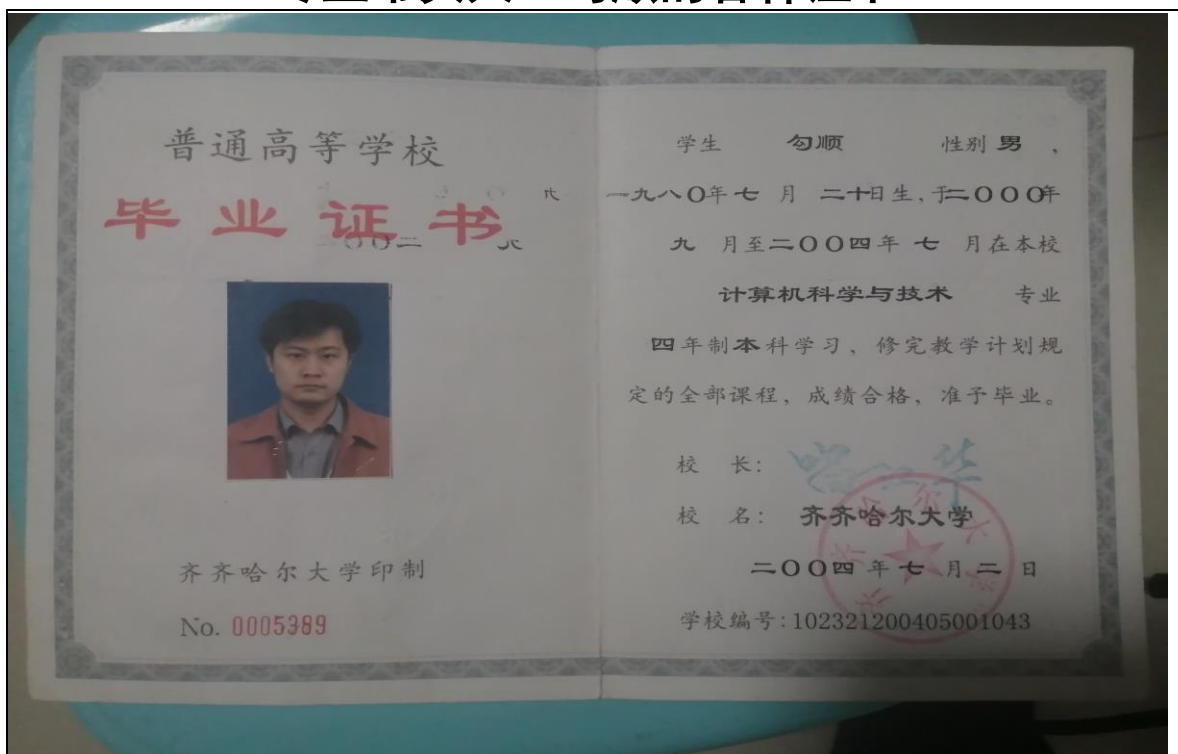 普通高等学校
毕业证书
齐齐哈尔大学印制
No. 0005389
学生 勾顺 性别 男 ,
一九八〇年七 月 二十日生,于二〇〇〇年
九 月至二〇〇四年 七 月在本校
计算机科学与技术 专业
四年制本科学习, 修完教学计划规
定的全部课程, 成绩合格, 准予毕业。
校 长:
校 名: 齐齐哈尔大学
二〇〇四 年 七 月 二 日
学校编号:102321200405001043